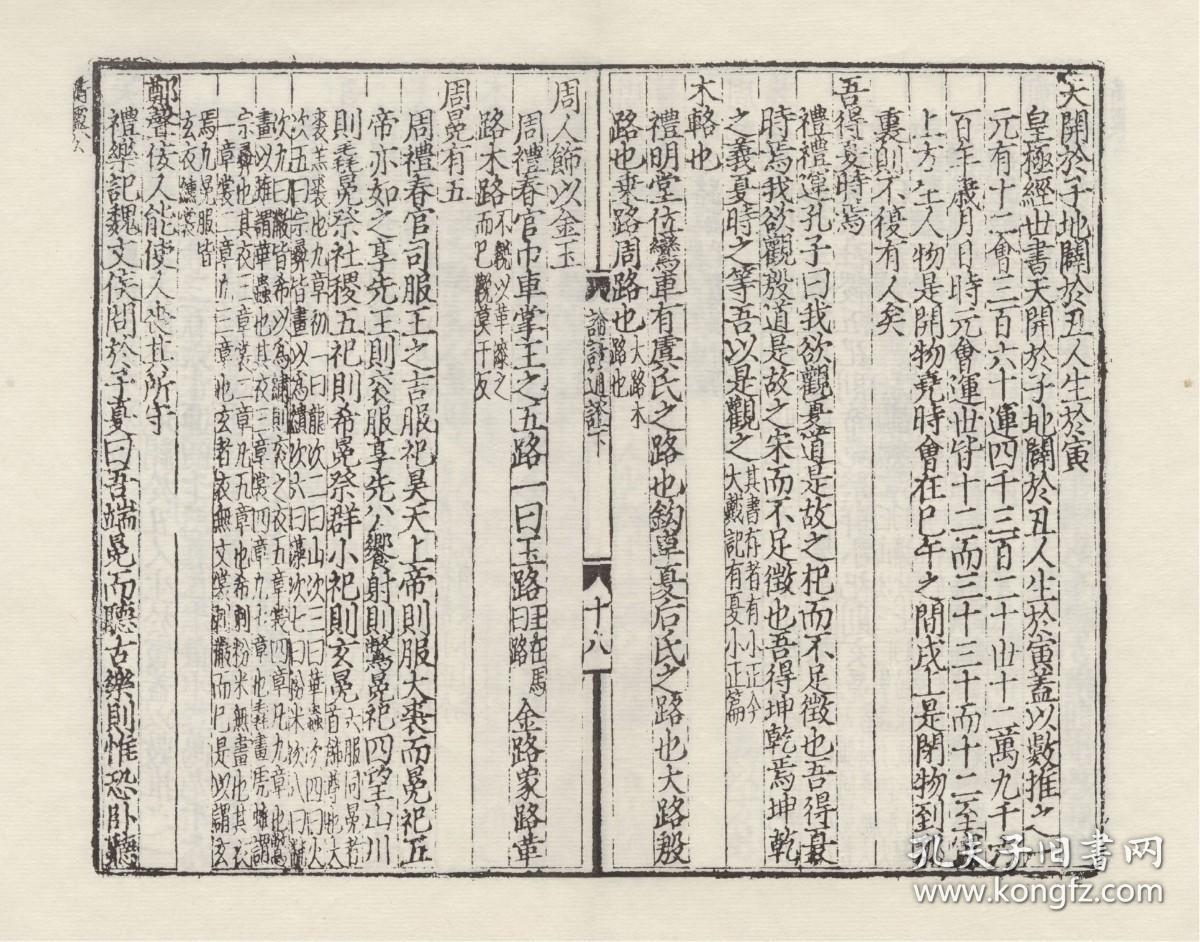 天開於子地闢於丑人生於寅
皇極經世書天開於子地闢於丑人生於寅蓋以數推之
元有十二會三百六十運四千三百二十世十二萬九千六
百年歲月日時元會運世皆十二而三十三十而十二至寅
上方生人物是開物堯時會在巳午之間戌上是閉物到那
裏則不復有人矣
吾得夏時焉
禮禮運孔子曰我欲觀夏道是故之杞而不足徵也吾得夏
時焉我欲觀殷道是故之宋而不足徵也吾得坤乾焉坤乾
之義夏時之等吾以是觀之其書存者有小正今大戴記有夏小正篇
木輅也
禮明堂位鸞車有虞氏之路也鈎車夏后氏之路也大路殷
路也乗路周路也大路木路也
論語通證下
十八
周人飾以金玉
周禮春官巾車掌王之五路一曰玉路王在焉曰路金路象路革
路木路不飾以革漆之而已
周冕有五
周禮春官司服王之吉服祀昊天上帝則服大裘而冕祀五
帝亦如之享先王則衮服享先公饗射則鷩冕祀四望山川
則毳冕祭社稷五祀則希冕祭群小祀則玄冕六服同冕者首飾尊也大
裘羔裘也九章初一曰龍次二曰山次三曰華蟲次四曰火
次五曰宗彝皆畫以為繢次六曰藻次七曰粉米次八曰黼
次九曰黻皆希以為繡則衮之衣五章裳四章凡九章也鷩
畫以雉謂華蟲也其衣三章裳四章凡七章也毳畫虎蜼謂
宗彝也其衣三章裳二章凡五章也希刺粉米無畫也其衣
一章裳二章凡三章也玄者衣無文裳刺黻而已是以謂玄
焉凡冕服皆
玄衣纁裳
鄭聲佞人能使人喪其所守
禮樂記魏文侯問於子夏曰吾端冕而聽古樂則惟恐卧聽
孔夫子旧书网
www.kongfz.com